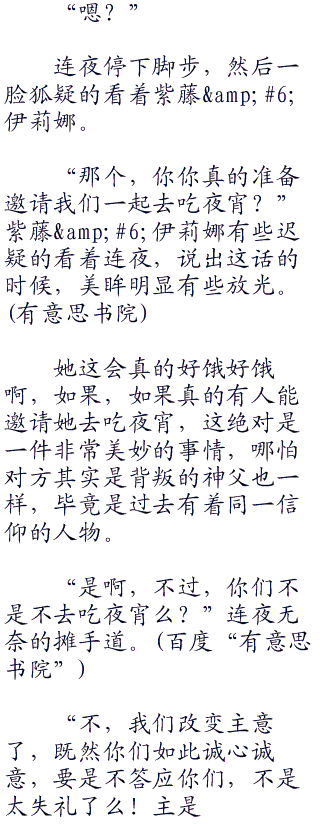 “嗯？”
连夜停下脚步，然后一
脸狐疑的看着紫藤&amp;#6;
伊莉娜。
“那个，你你真的准备
邀请我们一起去吃夜宵？”
紫藤&amp;#6;伊莉娜有些迟
疑的看着连夜，说出这话的
时候，美眸明显有些放光。
(有意思书院)
她这会真的好饿好饿
啊，如果，如果真的有人能
邀请她去吃夜宵，这绝对是
一件非常美妙的事情，哪怕
对方其实是背叛的神父也一
样，毕竟是过去有着同一信
仰的人物。
“是啊，不过，你们不
是不去吃夜宵么？”连夜无
奈的摊手道。(百度“有意思
书院”)
“不，我们改变主意
了，既然你们如此诚心诚
意，要是不答应你们，不是
太失礼了么！主是